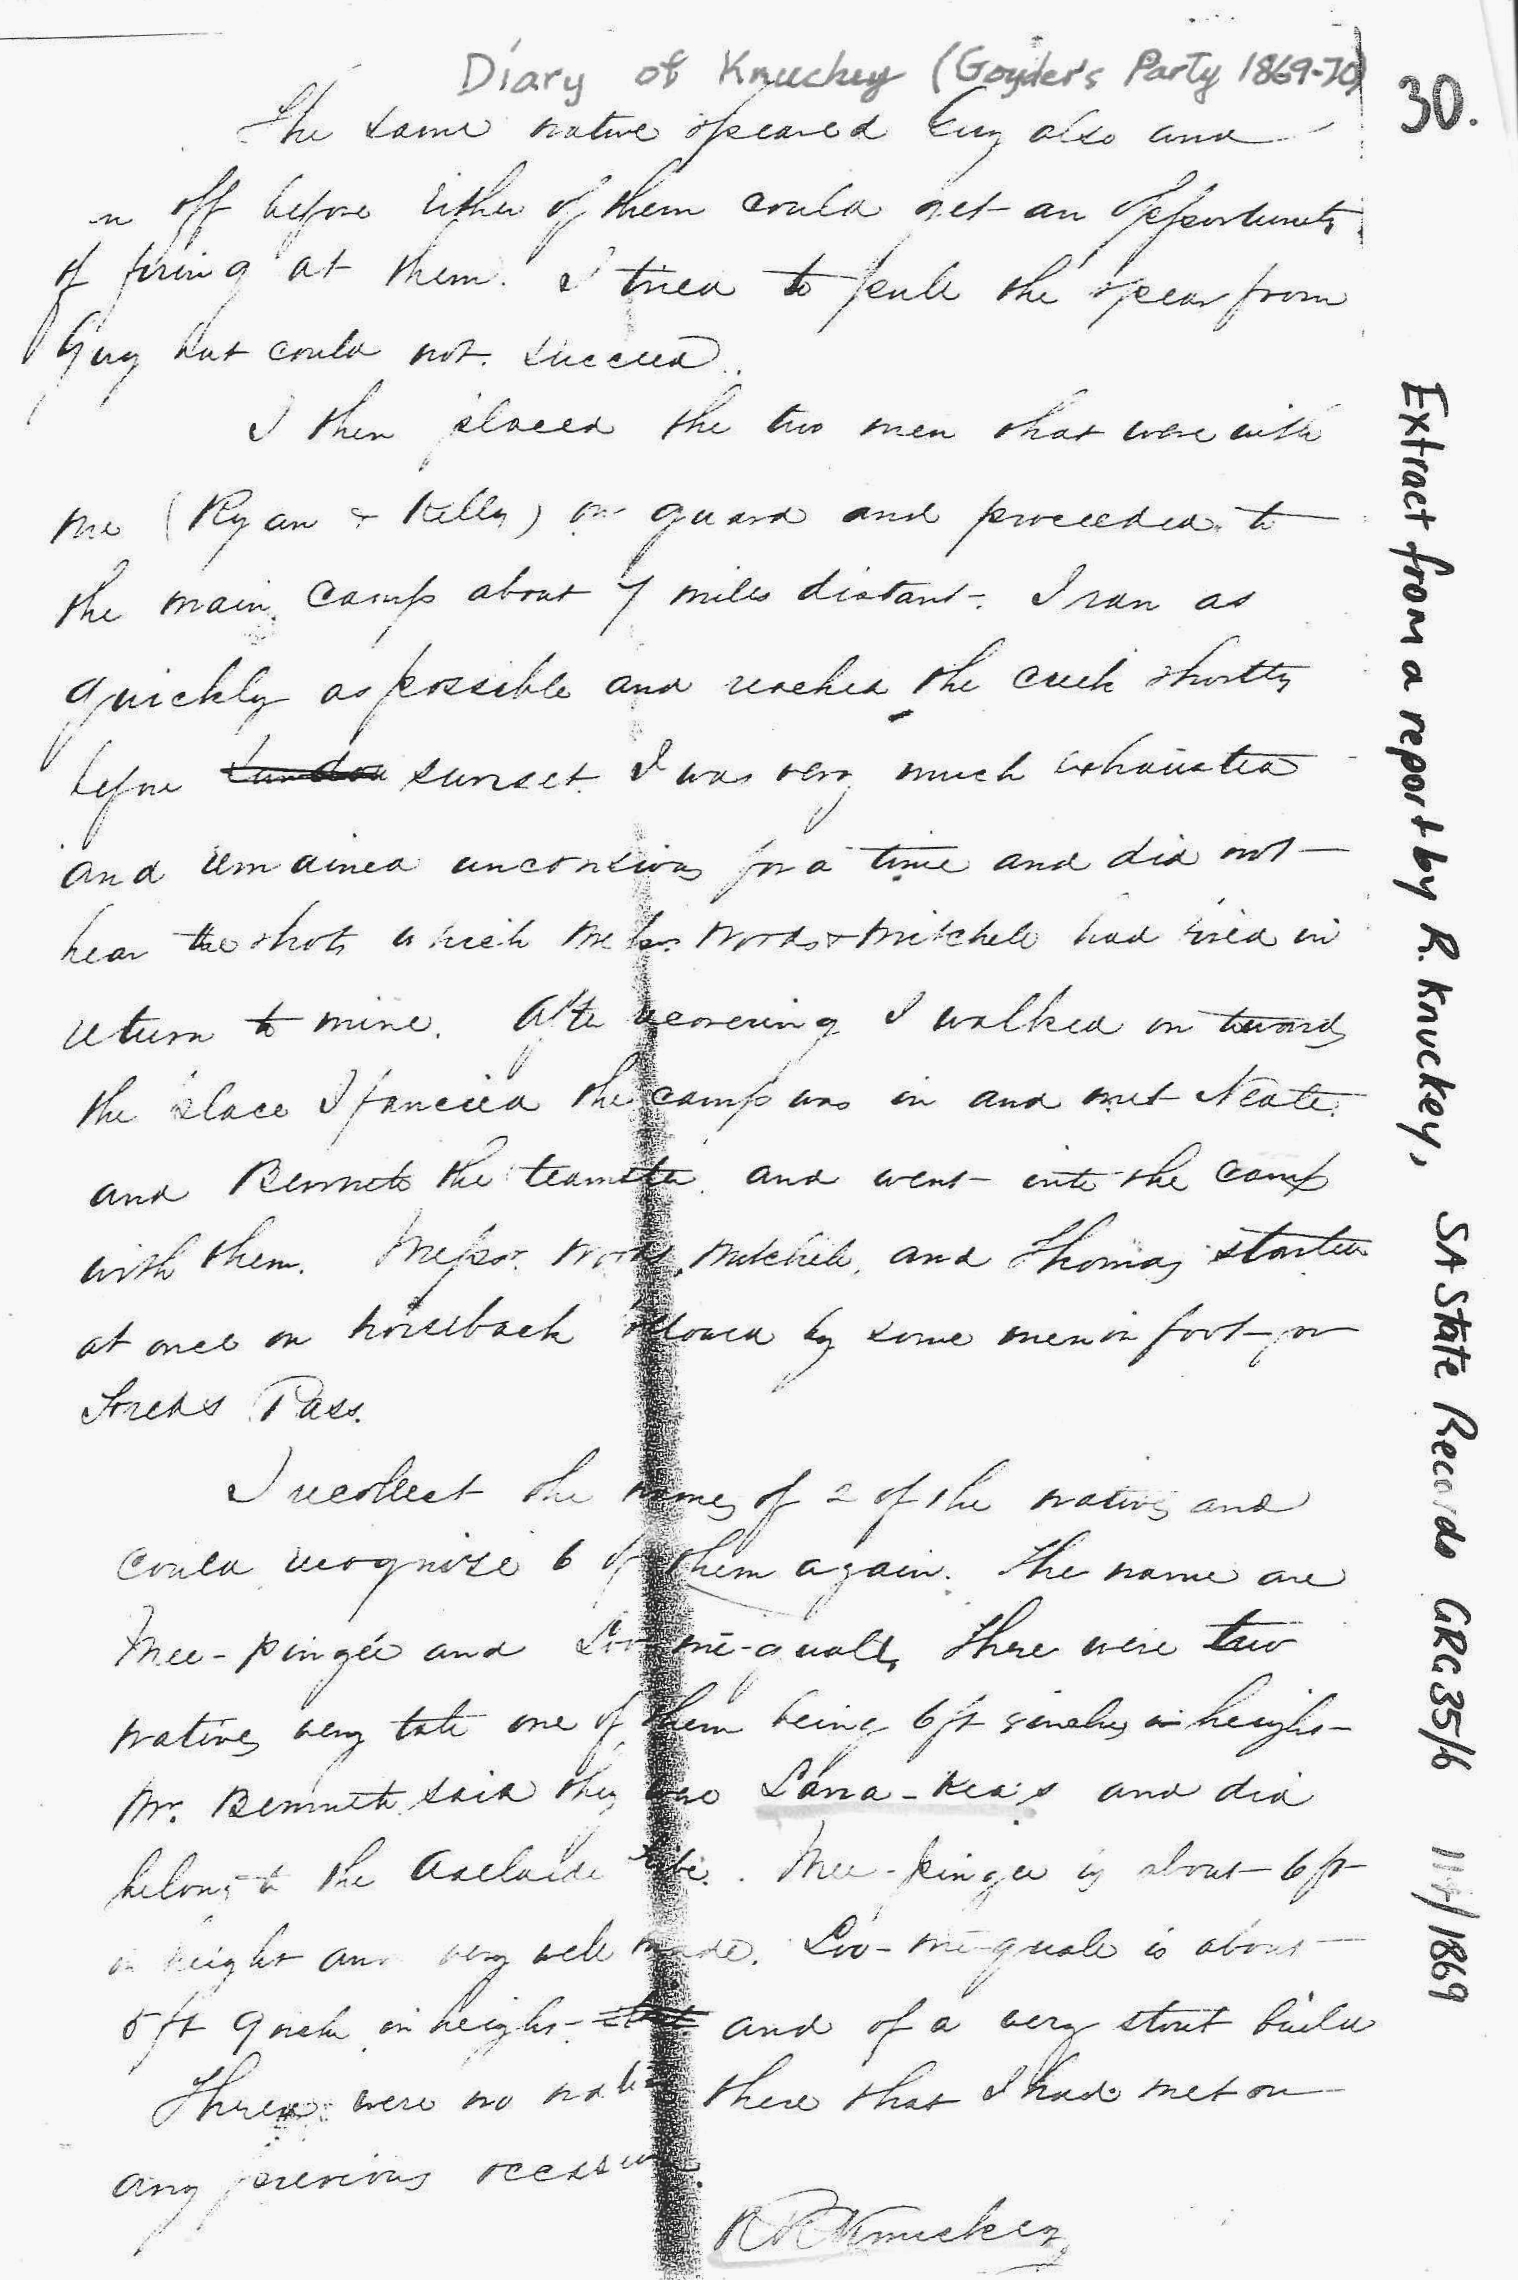 Diary of Knuckey (Goyder's Party 1869-70)
30.
The same native speared Guy also and
off before either of them could get an opportunity
of firing at them. I tried to pull the spear from
Guy but could not succeed.
I then placed the two men that were with
me (Ryan & Kelly) on guard and proceeded to
the main camp about 7 miles distant. I ran as
quickly as possible and reached the creek shortly
before sunset. I was very much exhausted
and remained unconsious for a time and did not
hear the shots which Messrs. Woods & Mitchell had fired in
return to mine. After recovering I walked on towards
the place I fancied the camp was in and met Neate
and Bennett the teamster and went into the camp
with them. Messrs. Woods, Mitchell, and Thomas started
at once on horseback followed by some men on foot for
Freds Pass.
I recollect the names of 2 of the natives and
could recognise 6 of them again. The name are
Mee-pingée and Loo-mē-quall, there were two
natives very tall one of them being 6ft in height
Mr. Bennett said they were Larra-kea's and did
belong to the Adelaide tribe. Mee-pingee is about 6ft
in height and very well made. Loo-mē-quale is about
5ft 9 inch in height and of a very stout build
There were no natives there that I had met on
any previous occasion.
R R Knuckey
Extract from a report by R. Knuckey, SA State Records GRG 35/6 /1869